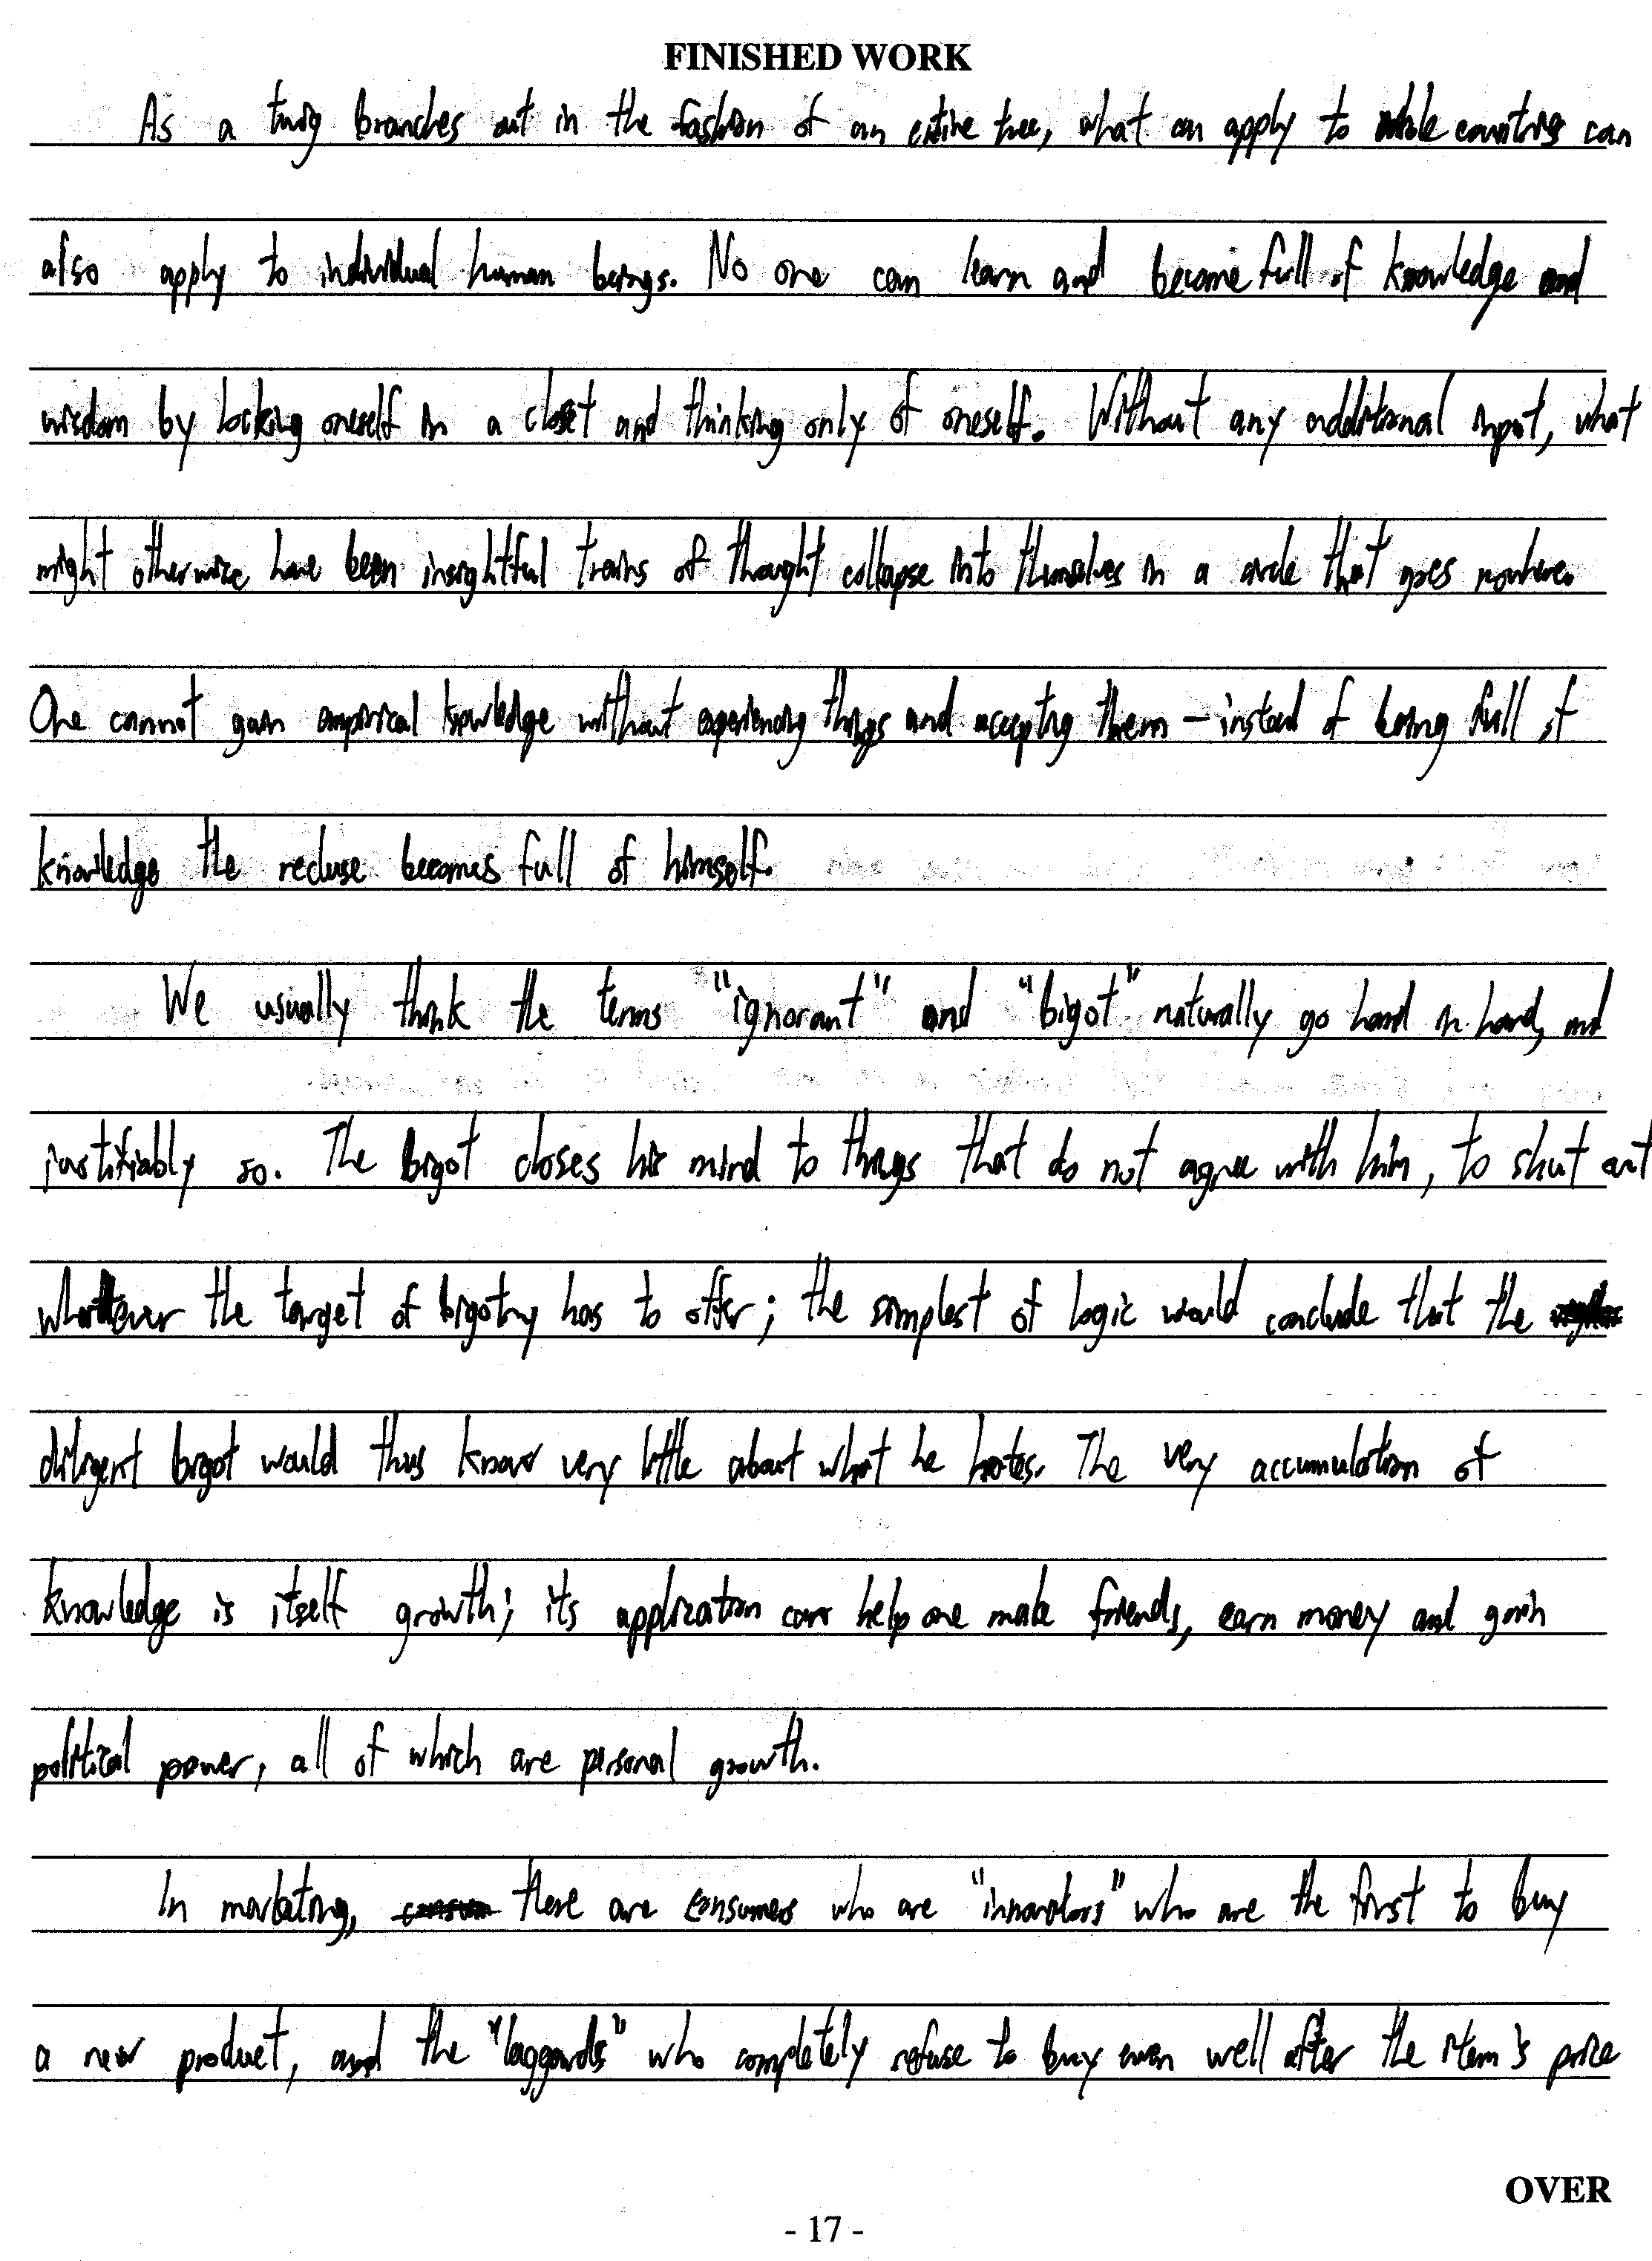 FINISHED WORK
As a twig branches out in the fashion of an entire tree, what can apply to whole countries can
also apply to individual human beings. No one can learn and become full of knowledge and
wisdom by locking oneself in a closet and thinking only of oneself. Without any additional input, what
might otherwise have been insightful trains of thought collapse into themselves in a circle that goes nowhere.
One cannot gain empirical knowledge without experiencing things and accepting them – instead of being full of
knowledge the recluse becomes full of himself.
We usually think the terms "ignorant" and "bigot" naturally go hand in hand, and
justifiably so. The bigot closes his mind to things that do not agree with him, to shut out
whatever the target of bigotry has to offer; the simplest of logic would conclude that the
diligent bigot would thus know very little about what he hates. The very accumulation of
knowledge is itself growth; its application can help one make friends, earn money and gain
political power, all of which are personal growth.
In marketing, there are consumers who are "innovators" who are the first to buy
a new product, and the "laggards" who completely refuse to buy even well after the item's price
OVER
- 17 -